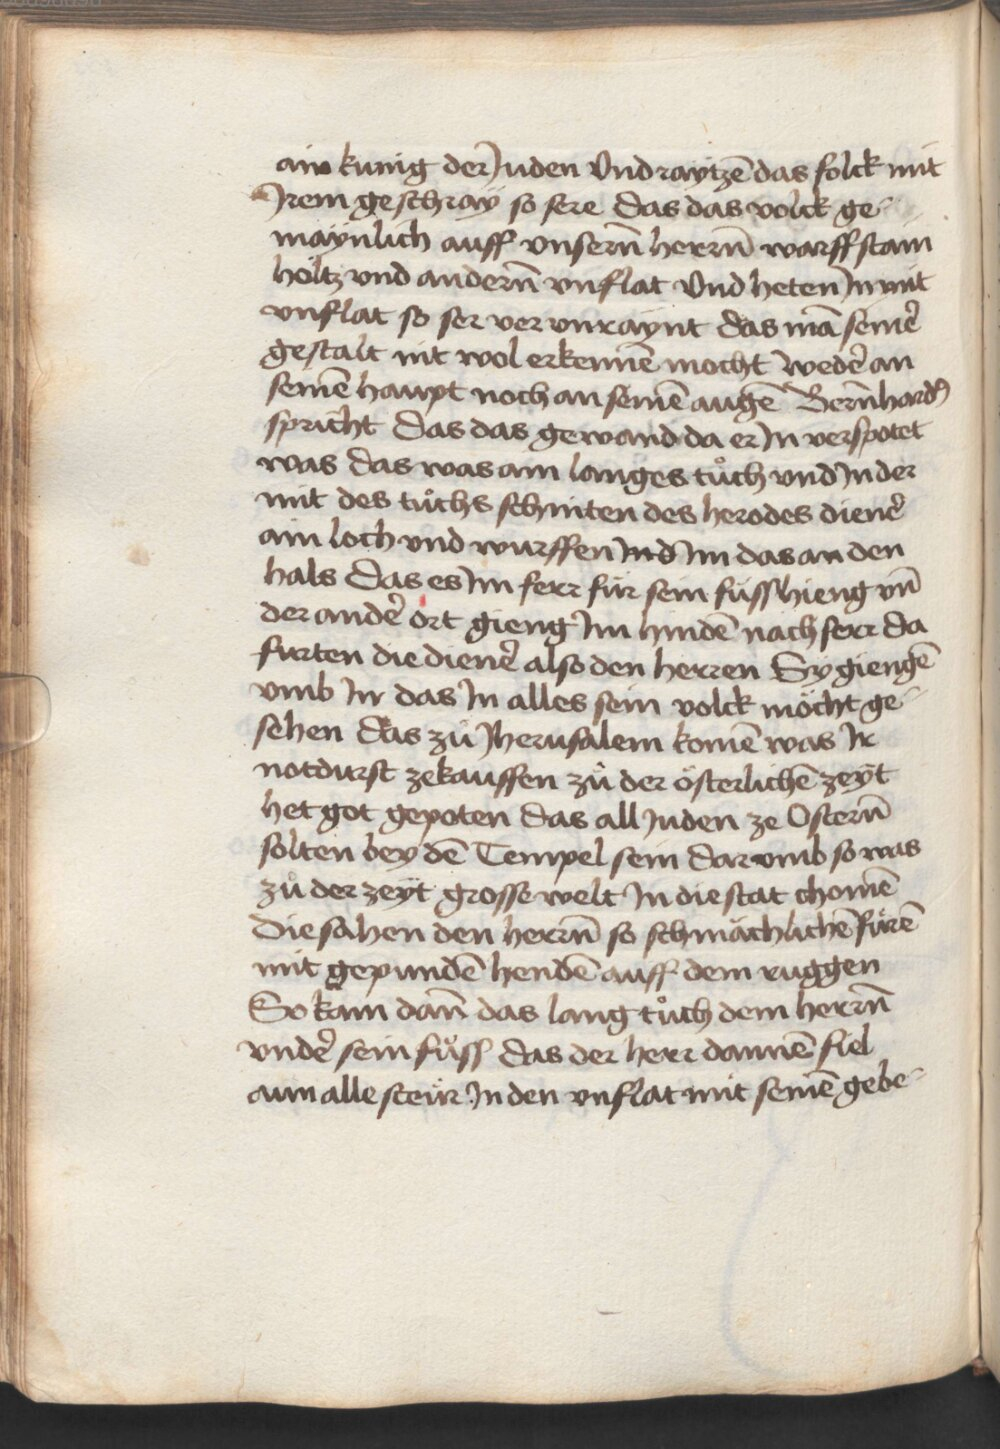 ain kunig der Juden Vnd raytzē das folck mit
Jrem geschray so sere das das volck ge-
maynlich auff vnsern̄ herrn̄ warff stain
holtz vnd andern̄ vnflat Vnd heten In mit
vnflat so ser ver vnraynt das mā seinẻ
gestalt nit wol erkennē mocht wedẻ an
seinē haupt noch an seinē augē Bern̄hardꝰ
spricht das das gewand da er In verspotet
was das was ain langes tůch vnd In der
mit des tůchs schniten des herodes dienẻ
ain loch vnd wurffen Im das an den
hals das es Im ferr für sein füss hieng vn̄
der andẻ ort gieng Im hindē nach ferr da
furten die dienẻ also den herren Sy giengē
vmb Ir das In alles sein volck möcht ge-
sehen das zů Jherusalem komē was Ir
notdurft zekauffen zů der österlichē zeyt
het got gepoten das all Juden ze Ostern̄
solten bey dē Tempel sein dar vmb so was
zů der zeyt grosse welt In die stat chomē
die sahen den herrn̄ so schmächlichē fůrē
mit gepundē hendē auff dem ruggen
So kam dan̄ das lang tůch dem herrn̄
vndẻ sein fůss das der herr dannē fiel
ann alle steür In den vnflat mit seinē gebe-